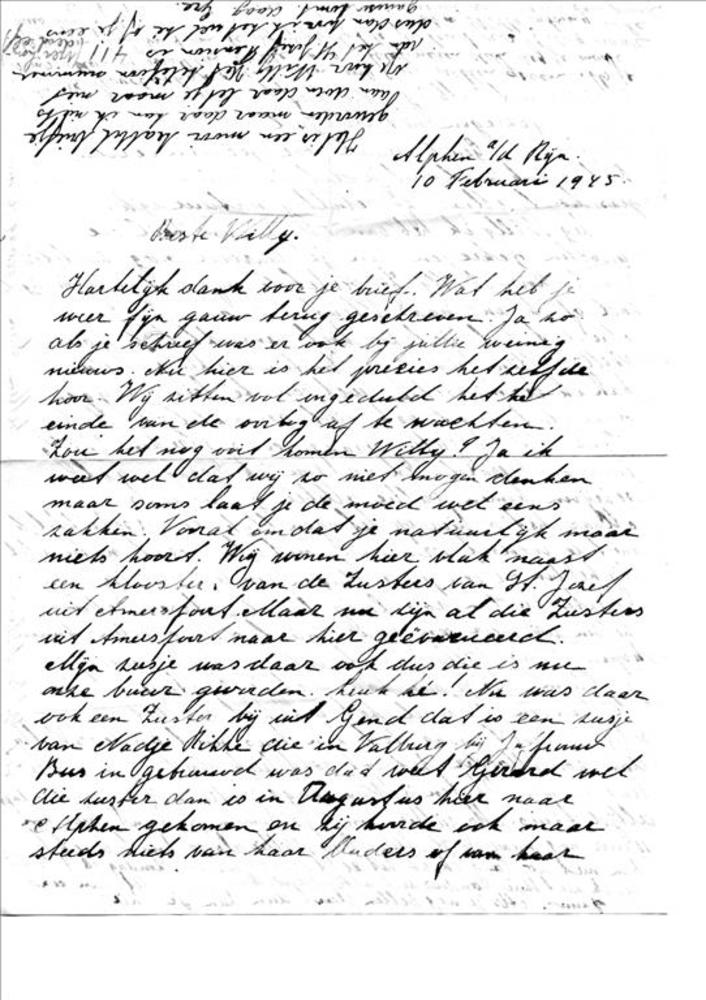 Alphen a/d Rijn.
10 Februari 1945.
Beste Willy.
Hartelijk dank voor je brief. Wat heb je
weer fijn gauw terug geschreven. Ja zo
als je schreef was er ook bij jullie weinig
nieuws. Nu hier is het precies het zelfde
hoor. Wij zitten vol ongeduld het
einde van de oorlog af te wachten.
Zou het nog ooit komen Willy? Ja ik
weet wel dat wij zo niet mogen denken
maar soms laat je de moed wel eens
zakken. Vooral omdat je natuurlijk maar
niets hoort. Wij wonen hier vlak naast
een klooster, van de Zusters van St. Jozef
uit Amersfoort. Maar nu zijn al die Zusters
uit Amersfoort naar hier geëvacueerd.
Mijn zusje was daar ook dus die is nu
onze buur geworden. Leuk hé! Nu was daar
ook een Zuster bij uit Gend dat is een zusje
van Nadje Rikke die in Valburg bij Jufrouw
Bus in gebouwd was dad weet Gerard wel
die zuster dan is in Augustus hier naar
Alphen gekomen en zij hoorde ook maar
steeds niets van haar Ouders of van haar
Het is een mooi kattebriefje
geworden maar daar kan ik niets
aan doen daar let je maar niet
op hoor Willy. Het telefoon nummer
van het St Jozef Pension is 411
dus dan hoor ik het wel hé of je eens
gauw komt daag